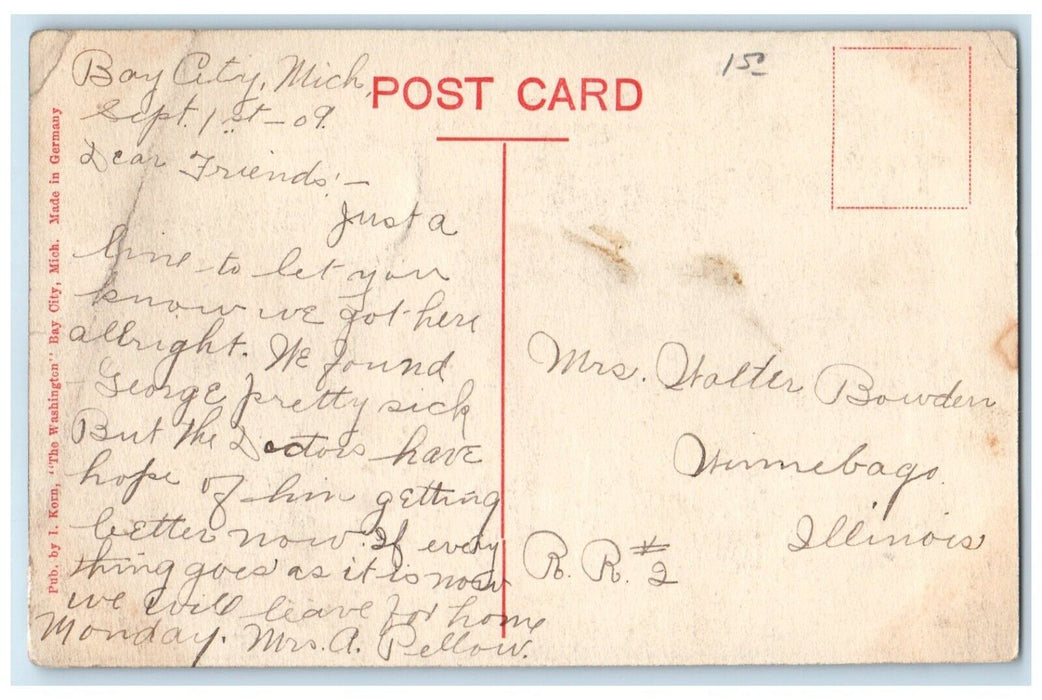 Bay City, Mich,
Sept. 1st - 09.
Dear Friends:-
Just a
line to let you
know we got here
allright. We found
George pretty sick
But the Doctors have
hope of him getting
better now If every
thing goes as it is now
we will leave for home
Monday. Mrs. A. Pellow.
POST CARD
15
Mrs. Walter Bowden
Winnebago.
Illinois
R. R. # 2
Pub. by I. Korn, "The Washington" Bay City, Mich. Made in Germany